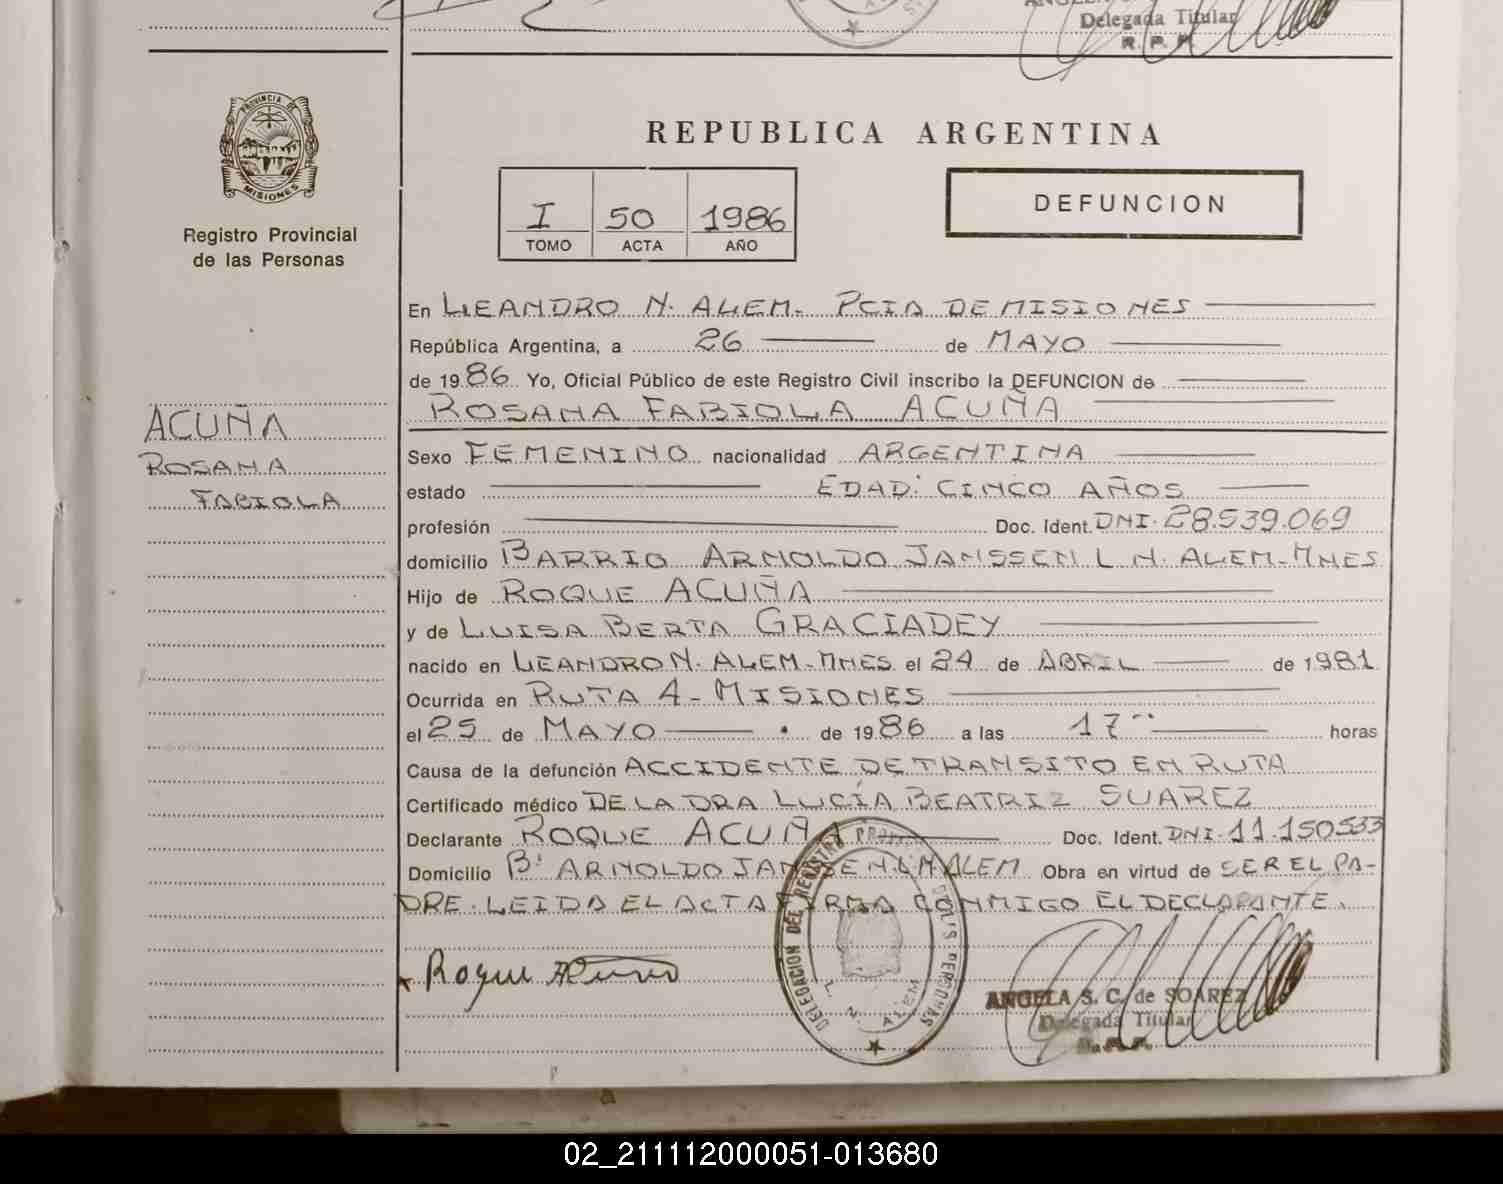 Delegada Titular
R. P. P.
PROVINCIA DE
MISIONES
Registro Provincial
de las Personas
REPUBLICA ARGENTINA
I 50 1986
TOMO ACTA AÑO
DEFUNCION
En LEANDRO N. ALEM. PCIA DE MISIONES
República Argentina, a 26 de MAYO
de 1986 Yo, Oficial Público de este Registro Civil inscribo la DEFUNCION de
ROSANA FABIOLA ACUÑA
ACUÑA
ROSANA
FABIOLA
Sexo FEMENINO nacionalidad ARGENTINA
estado EDAD: CINCO AÑOS
profesión Doc. Ident. DNI. 28.539.069
domicilio BARRIO ARNOLDO JANSSEN L. N. ALEM-MNES
Hijo de ROQUE ACUÑA
y de LUISA BERTA GRACIADEY
nacido en LEANDRO N. ALEM-MNES el 24 de ABRIL de 1981
Ocurrida en RUTA 4 - MISIONES
el 25 de MAYO de 1986 a las 17 horas
Causa de la defunción ACCIDENTE DE TRANSITO EN RUTA
Certificado médico DE LA DRA LUCÍA BEATRIZ SUAREZ
Declarante ROQUE ACUÑA Doc. Ident. DNI. 11.150533
Domicilio Bº ARNOLDO JANSSEN L N ALEM Obra en virtud de SER EL PA-
DRE. LEIDA EL ACTA FIRMA CONMIGO EL DECLARANTE.
Roque Acuña
DELEGACION DEL REGISTRO PROV. DE LAS PERSONAS
L. N. ALEM
ANGELA S. C. de SOAREZ
Delegada Titular
02_211112000051-013680